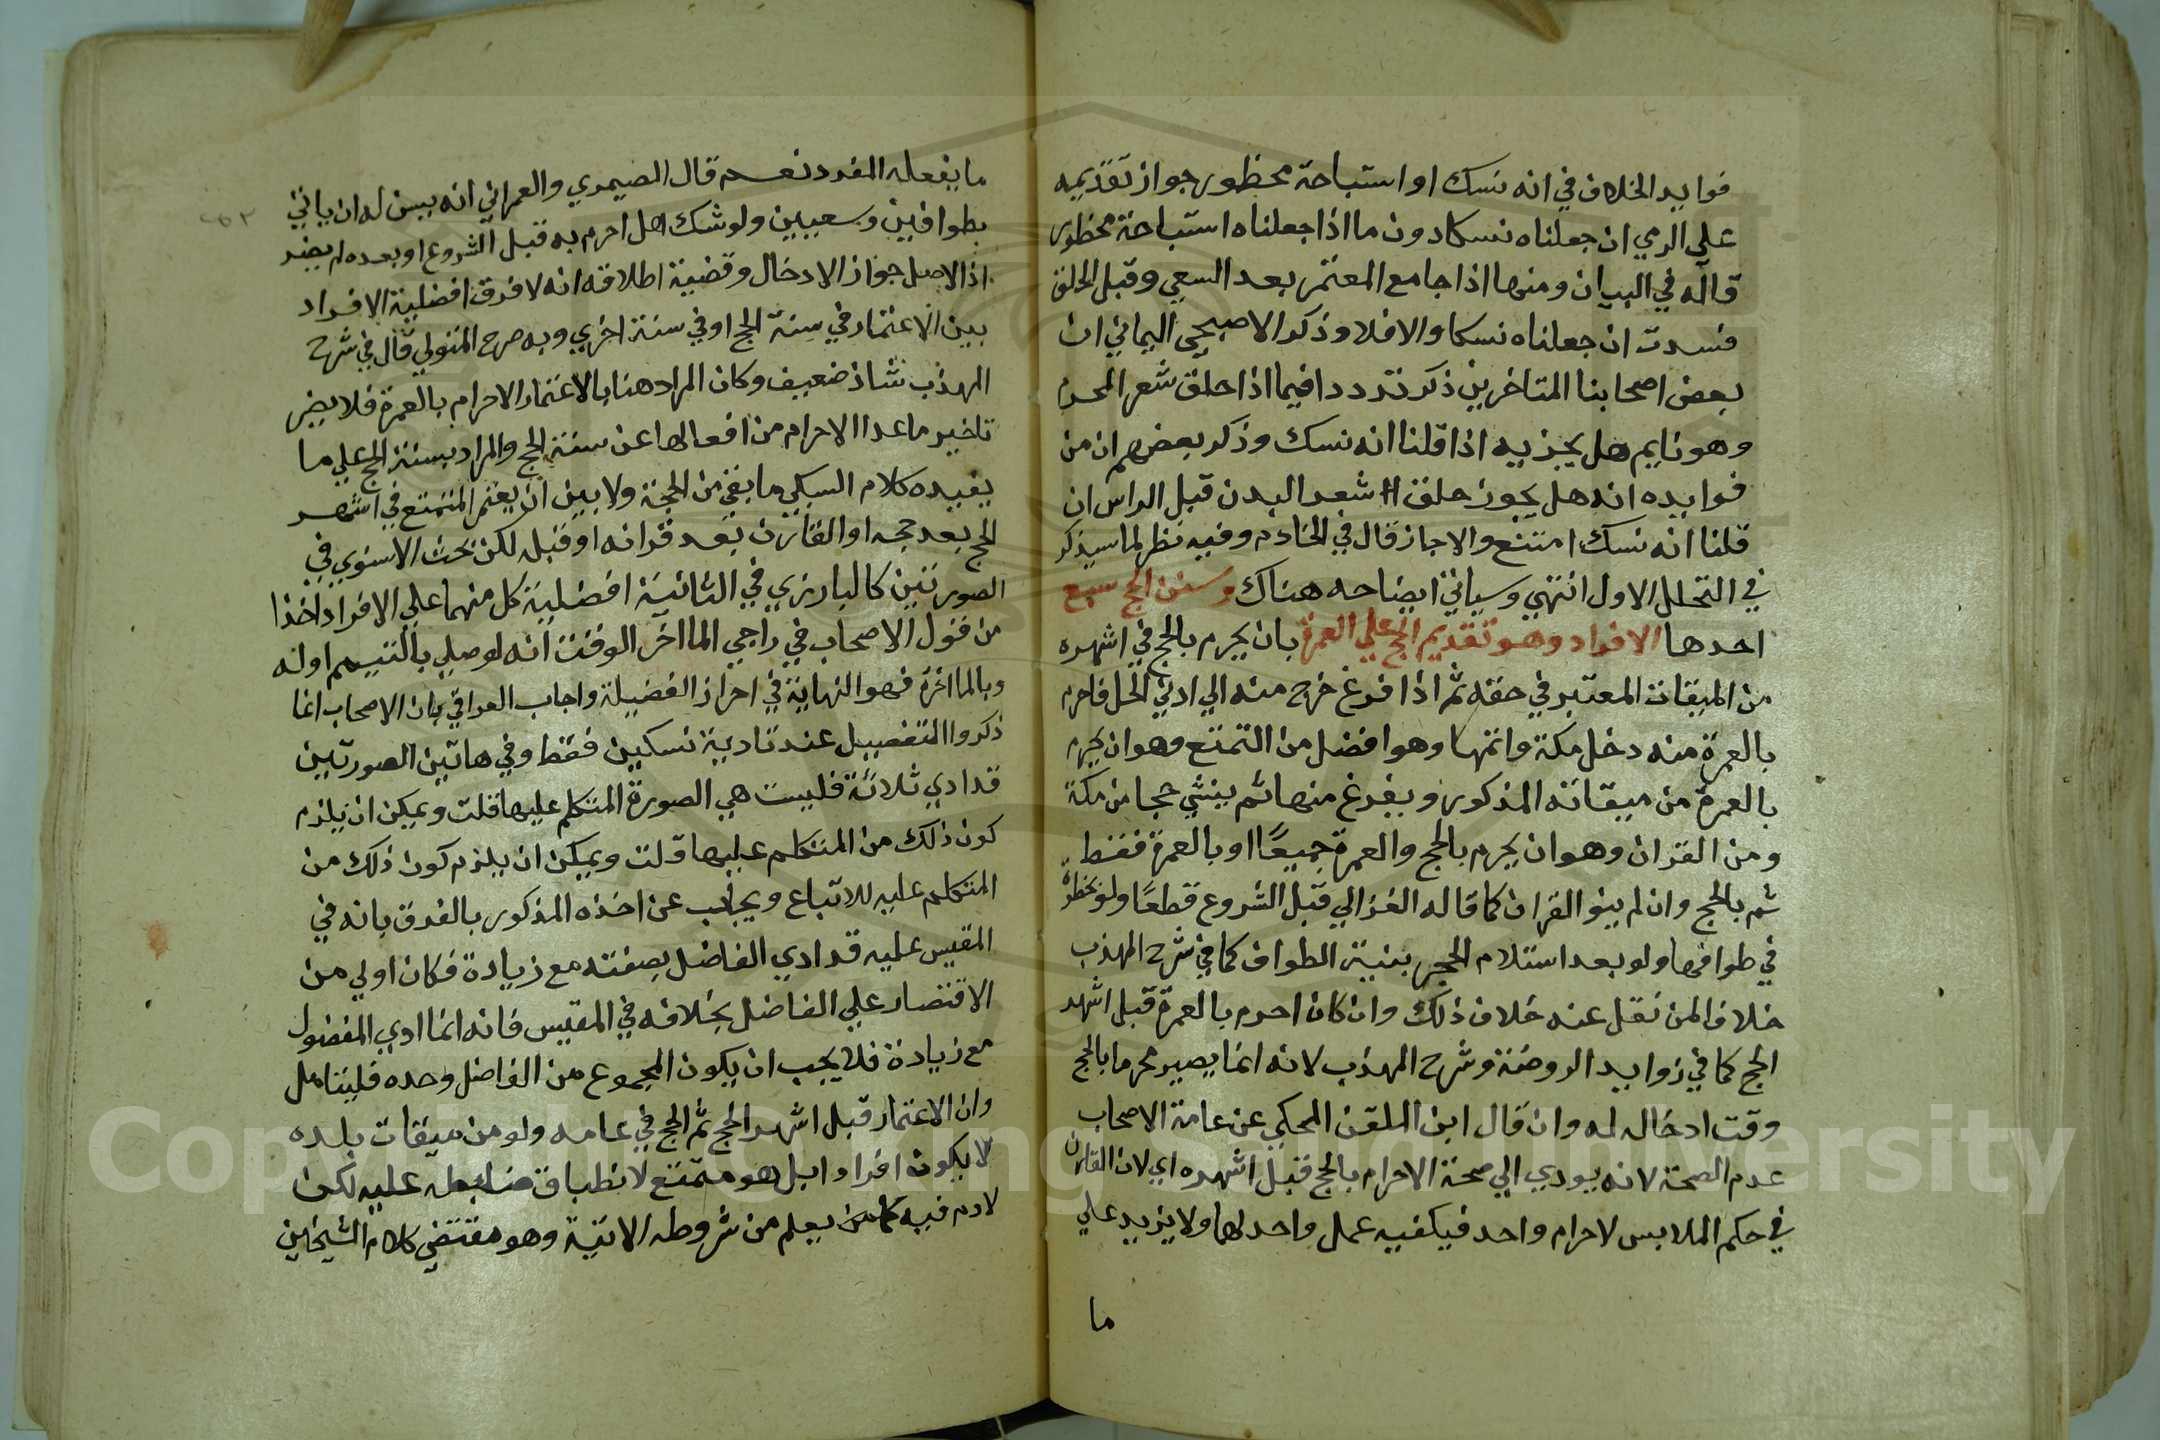 فوايد الخلاف في انه نسك او استباحة محظور جواز تقديمه
علي الرمي ان جعلناه نسكا دون ما اذا جعلناه استباحة محظور
قاله في البيان ومنها اذا جامع المعتمر بعد السعي وقبل الحلق
فسدت ان جعلناه نسكا والا فلا وذكر الاصبحي اليماني ان
بعض اصحابنا المتاخرين ذكر ترددا فيما اذا حلق شعر المحرم
وهو نايم هل يجزيه اذا قلنا انه نسك وذكر بعضهم ان من
فوايده انه هل يجوز حلق شعر البدن قبل الراس ان
قلنا انه نسك امتنع والا جاز قال في الخادم وفيه نظر لما سيذكر
في التحلل الاول انتهي وسياتي ايضاحه هناك وسنن الحج سبع
احدها الافراد وهو تقديم الحج علي العمرة بان يحرم بالحج في اشهره
من الميقات المعتبر في حقه ثم اذا فرغ خرج منه الي ادني الحل فاحرم
بالعمرة منه دخل مكة واتمها وهو افضل من التمتع وهو ان يحرم
بالعمرة من ميقاته المذكور ويفرغ منها ثم ينشي حجا من مكة
ومن القران وهو ان يحرم بالحج والعمرة جميعًا او بالعمرة فقط
ثم بالحج وان لم ينو القران كما قاله الغزالي قبل الشروع قطعًا ولو بخطوة
في طوافها ولو بعد استلام الحجر بنية الطواف كما في شرح المهذب
خلافا لمن نقل عنه خلاف ذلك وان كان احرم بالعمرة قبل اشهر
الحج كما في زوايد الروضة وشرح المهذب لانه انما يصير محرما بالحج
وقت ادخاله له وان قال ابن الملقن المحكي عن عامة الاصحاب
عدم الصحة لانه يودي الي صحة الاحرام بالحج قبل اشهره اي لان القارن
في حكم الملابس لاحرام واحد فيكفيه عمل واحد لهما ولا يزيد علي
ما
ما يفعله المفرد نعم قال الصيمري والعمراني انه يسن له ان ياتي
بطوافين وسعيين ولو شك هل احرم به قبل الشروع او بعده لم يضر
اذ الاصل جواز الادخال وقضية اطلاقه انه لا فرق افضلية الافراد
بين الاعتمار في سنة الحج او في سنة اخري وبه صرح المتولي قال في شرح
المهذب شاذ ضعيف وكان المراد هنا بالاعتمار الاحرام بالعمرة فلا يضر
تاخير ما عدا الاحرام من افعالها عن سنة الحج والمراد بسنة الحج علي ما
يفيده كلام السبكي ما بقي من الحجة ولا بين ان يعتمر المتمتع في اشهر
الحج بعد حجه او القارن بعد قرانه او قبله لكن بحث الاسنوي في
الصورتين كالبارزي في الثانية افضلية كل منهما علي الافراد اخذا
من قول الاصحاب في راجي الما اخر الوقت انه لو صلي بالتيمم اوله
وبالما اخره فهو النهاية في احراز الفضيلة واجاب العراقي بان الاصحاب انما
ذكروا التفضيل عند تادية نسكين فقط وفي هاتين الصورتين
قد ادي ثلاثة فليست هي الصورة المتكلم عليها قلت ويمكن ان يلزم
كون ذلك من المتكلم عليها قلت ويمكن ان يلزم كون ذلك من
المتكلم عليه للاتباع ويجاب عن اخذه المذكور بالفرق بانه في
المقيس عليه قد ادي الفاضل بصفته مع زيادة فكان اولي من
الاقتصار علي الفاضل بخلافه في المقيس فانه انما ادي المفضول
مع زيادة فلا يجب ان يكون المجموع من الفاضل وحده فليتامل
وان الاعتمار قبل اشهر الحج ثم الحج في عامه ولو من ميقات بلده
لا يكون افرادا بل هو متمتع لانطباق ضابطه عليه لكن
لا دم فيه يعلم من شروطه الاتية وهو مقتضي كلام الشيخين
Copyright © King Saud University